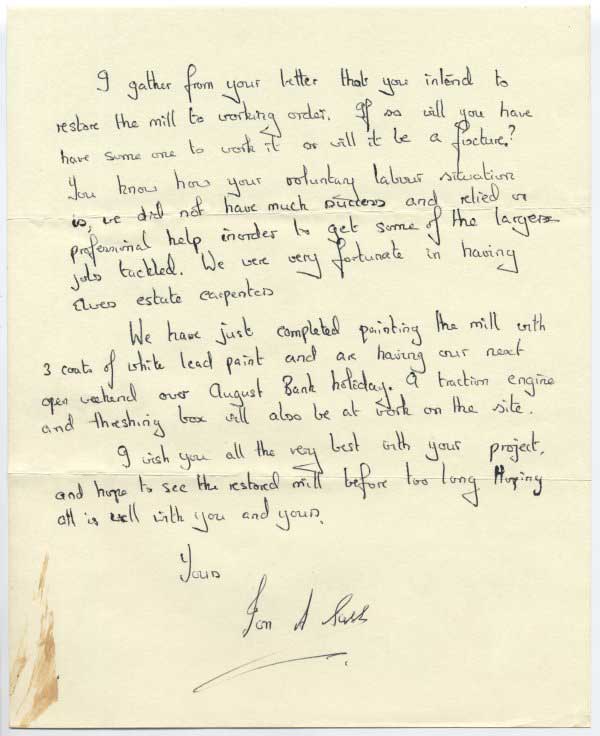 I gather from your letter that you intend to
restore the mill to working order. If so will you have
have some one to work it or will it be a fixture?
You know how your voluntary labour situation
is, we did not have much success and relied on
professional help inorder to get some of the larger
jobs tackled. We were very fortunate in having
estate carpenters
We have just completed painting the mill with
3 coats of white lead paint and are having our next
open weekend over August Bank holiday. A traction engine
and threshing box will also be at work on the site.
I wish you all the very best with your project,
and hope to see the restored mill before too long Hoping
all is well with you and yours.
Yours
Jon A Sass